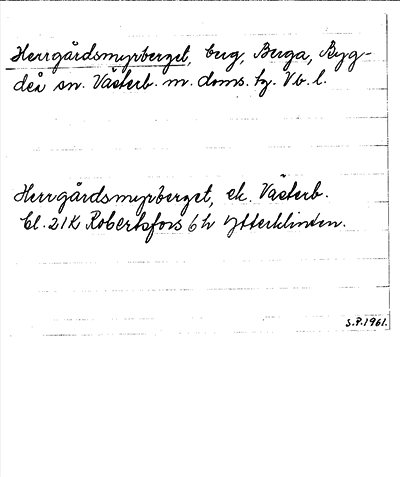 Herrgårdsmyrberget, berg, Berga, Byg-
deå sn. Västerb. m. doms. tg. Vb. l.
Herrgårdsmyrberget, ek. Västerb.
bl. 21K Robertsfors 6 h Ytterklinten.
S.P. 1961.